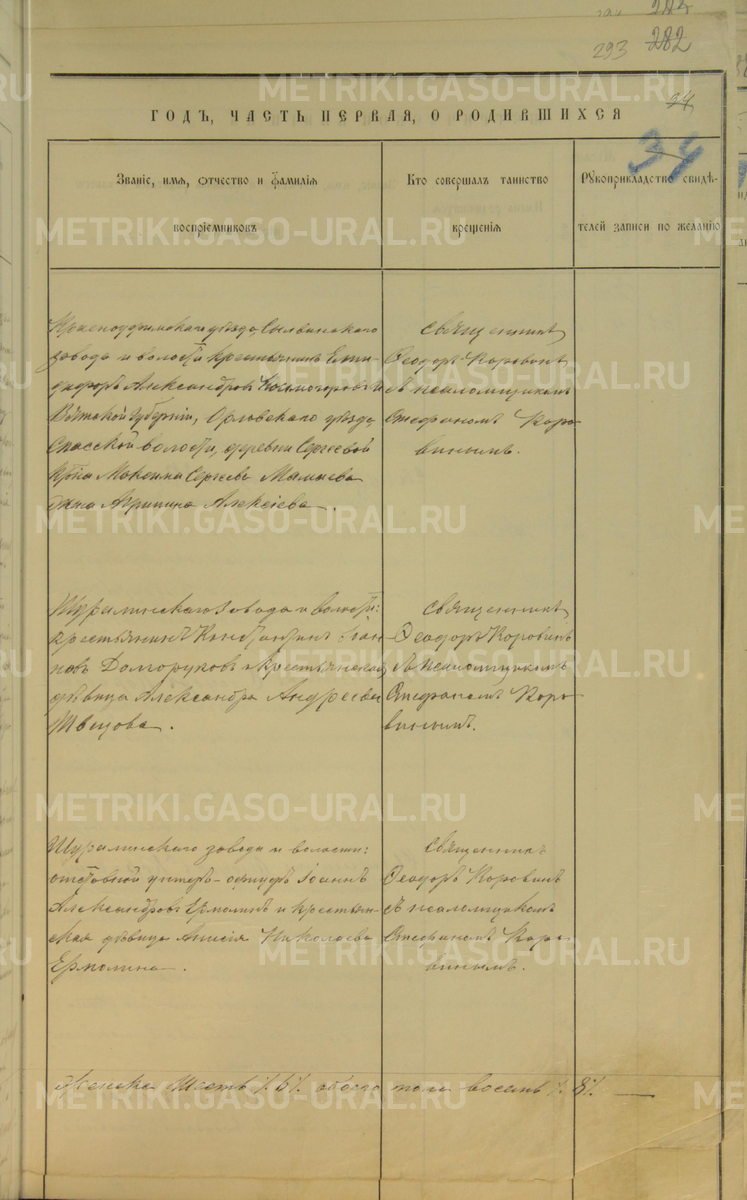 293 282
34
ГОДЪ, ЧАСТЬ ПЕРВАЯ, О РОДИВШИХСЯ
34
Званіе, имя, отчество и фамилія воспріемниковъ
Кто совершалъ таинство крещенія
Рукоприкладство свидѣтелей записи по желанію
Красноуфимскаго уѣзда, Сылвинскаго
завода и волости крестьянинъ
Александровъ и
Вятской Губерніи, Орловскаго уѣзда,
Спасской волости, деревни Сергеевой
Максима Сергеева Мамаева
жена Агрипина Алексіева.
Священникъ
Ѳеодоръ Коровинъ
съ псаломщикомъ
Стефаномъ Коро
винымъ.
Шуралинскаго завода и волости:
крестьянинъ Константинъ Іоан
новъ Долгоруковъ и крестьянская
дѣвица Александра Андреева
Швецова.
Священникъ
Ѳеодоръ Коровинъ
съ псаломщикомъ
Стефаномъ Коро
винымъ.
Шуралинскаго завода и волости:
отставной унтеръ-офицеръ Іоаннъ
Александровъ Ермолинъ и крестьян-
ская дѣвица Анисія Николаева
Ермолина.
Священникъ
Ѳеодоръ Коровинъ
съ псаломщикомъ
Стефаномъ Коро
винымъ.
Женска шесть /.6/. обоего пола восемь /.8/.
METRIKI.GASO-URAL.RU